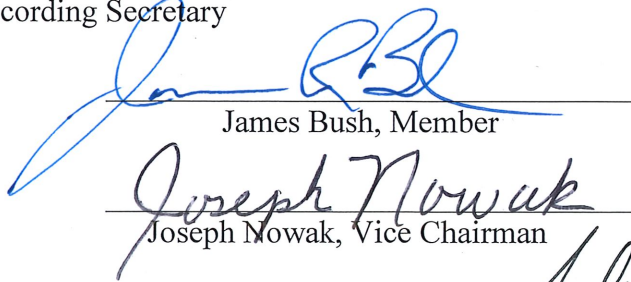 cording Secretary
James Bush, Member
Joseph Nowak
Joseph Nowak, Vice Chairman